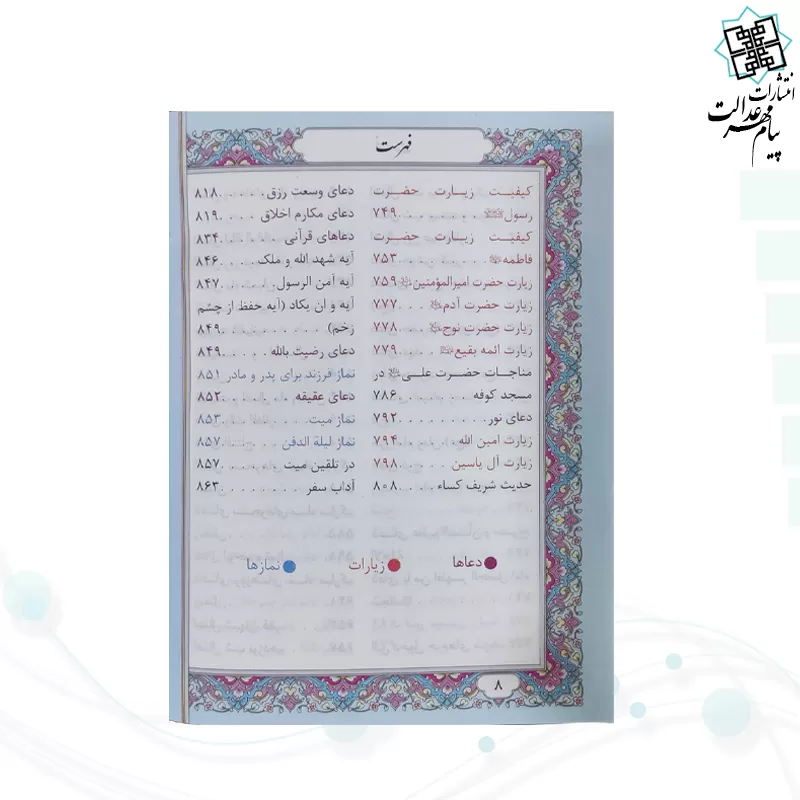 انتشارات
پیام مهر عدالت
فهرست
کیفیت زیارت حضرت
رسول ﷺ . . . . ۷۴۹
کیفیت زیارت حضرت
فاطمه . . . . . ۷۵۳
زیارت حضرت امیرالمؤمنین ۷۵۹
زیارت حضرت آدم . . ۷۷۷
زیارت حضرت نوح . . ۷۷۸
زیارت ائمه بقیع . . . . ۷۷۹
مناجات حضرت علی در
مسجد کوفه . . . . ۷۸۶
دعای نور . . . . . . . . ۷۹۲
زیارت امین الله . . . . ۷۹۴
زیارت آل یاسین . . . . ۷۹۸
حدیث شریف کساء . . . . ۸۰۸
دعای وسعت رزق . . . . . ۸۱۸
دعای مکارم اخلاق . . . . ۸۱۹
دعاهای قرآنی . . . . . . ۸۳۴
آیه شهد الله و ملک . . . . ۸۴۶
آیه آمن الرسول . . . . . ۸۴۷
آیه و ان یکاد (آیه حفظ از چشم
زخم) . . . . . . . . ۸۴۹
دعای رضیت بالله . . . . ۸۴۹
نماز فرزند برای پدر و مادر ۸۵۱
دعای عقیقه . . . . . . ۸۵۲
نماز میت . . . . . . . ۸۵۳
نماز لیلة الدفن . . . . . ۸۵۷
در تلقین میت . . . . . ۸۵۷
آداب سفر . . . . . . . . ۸۶۳
دعاها زیارات نمازها
۸